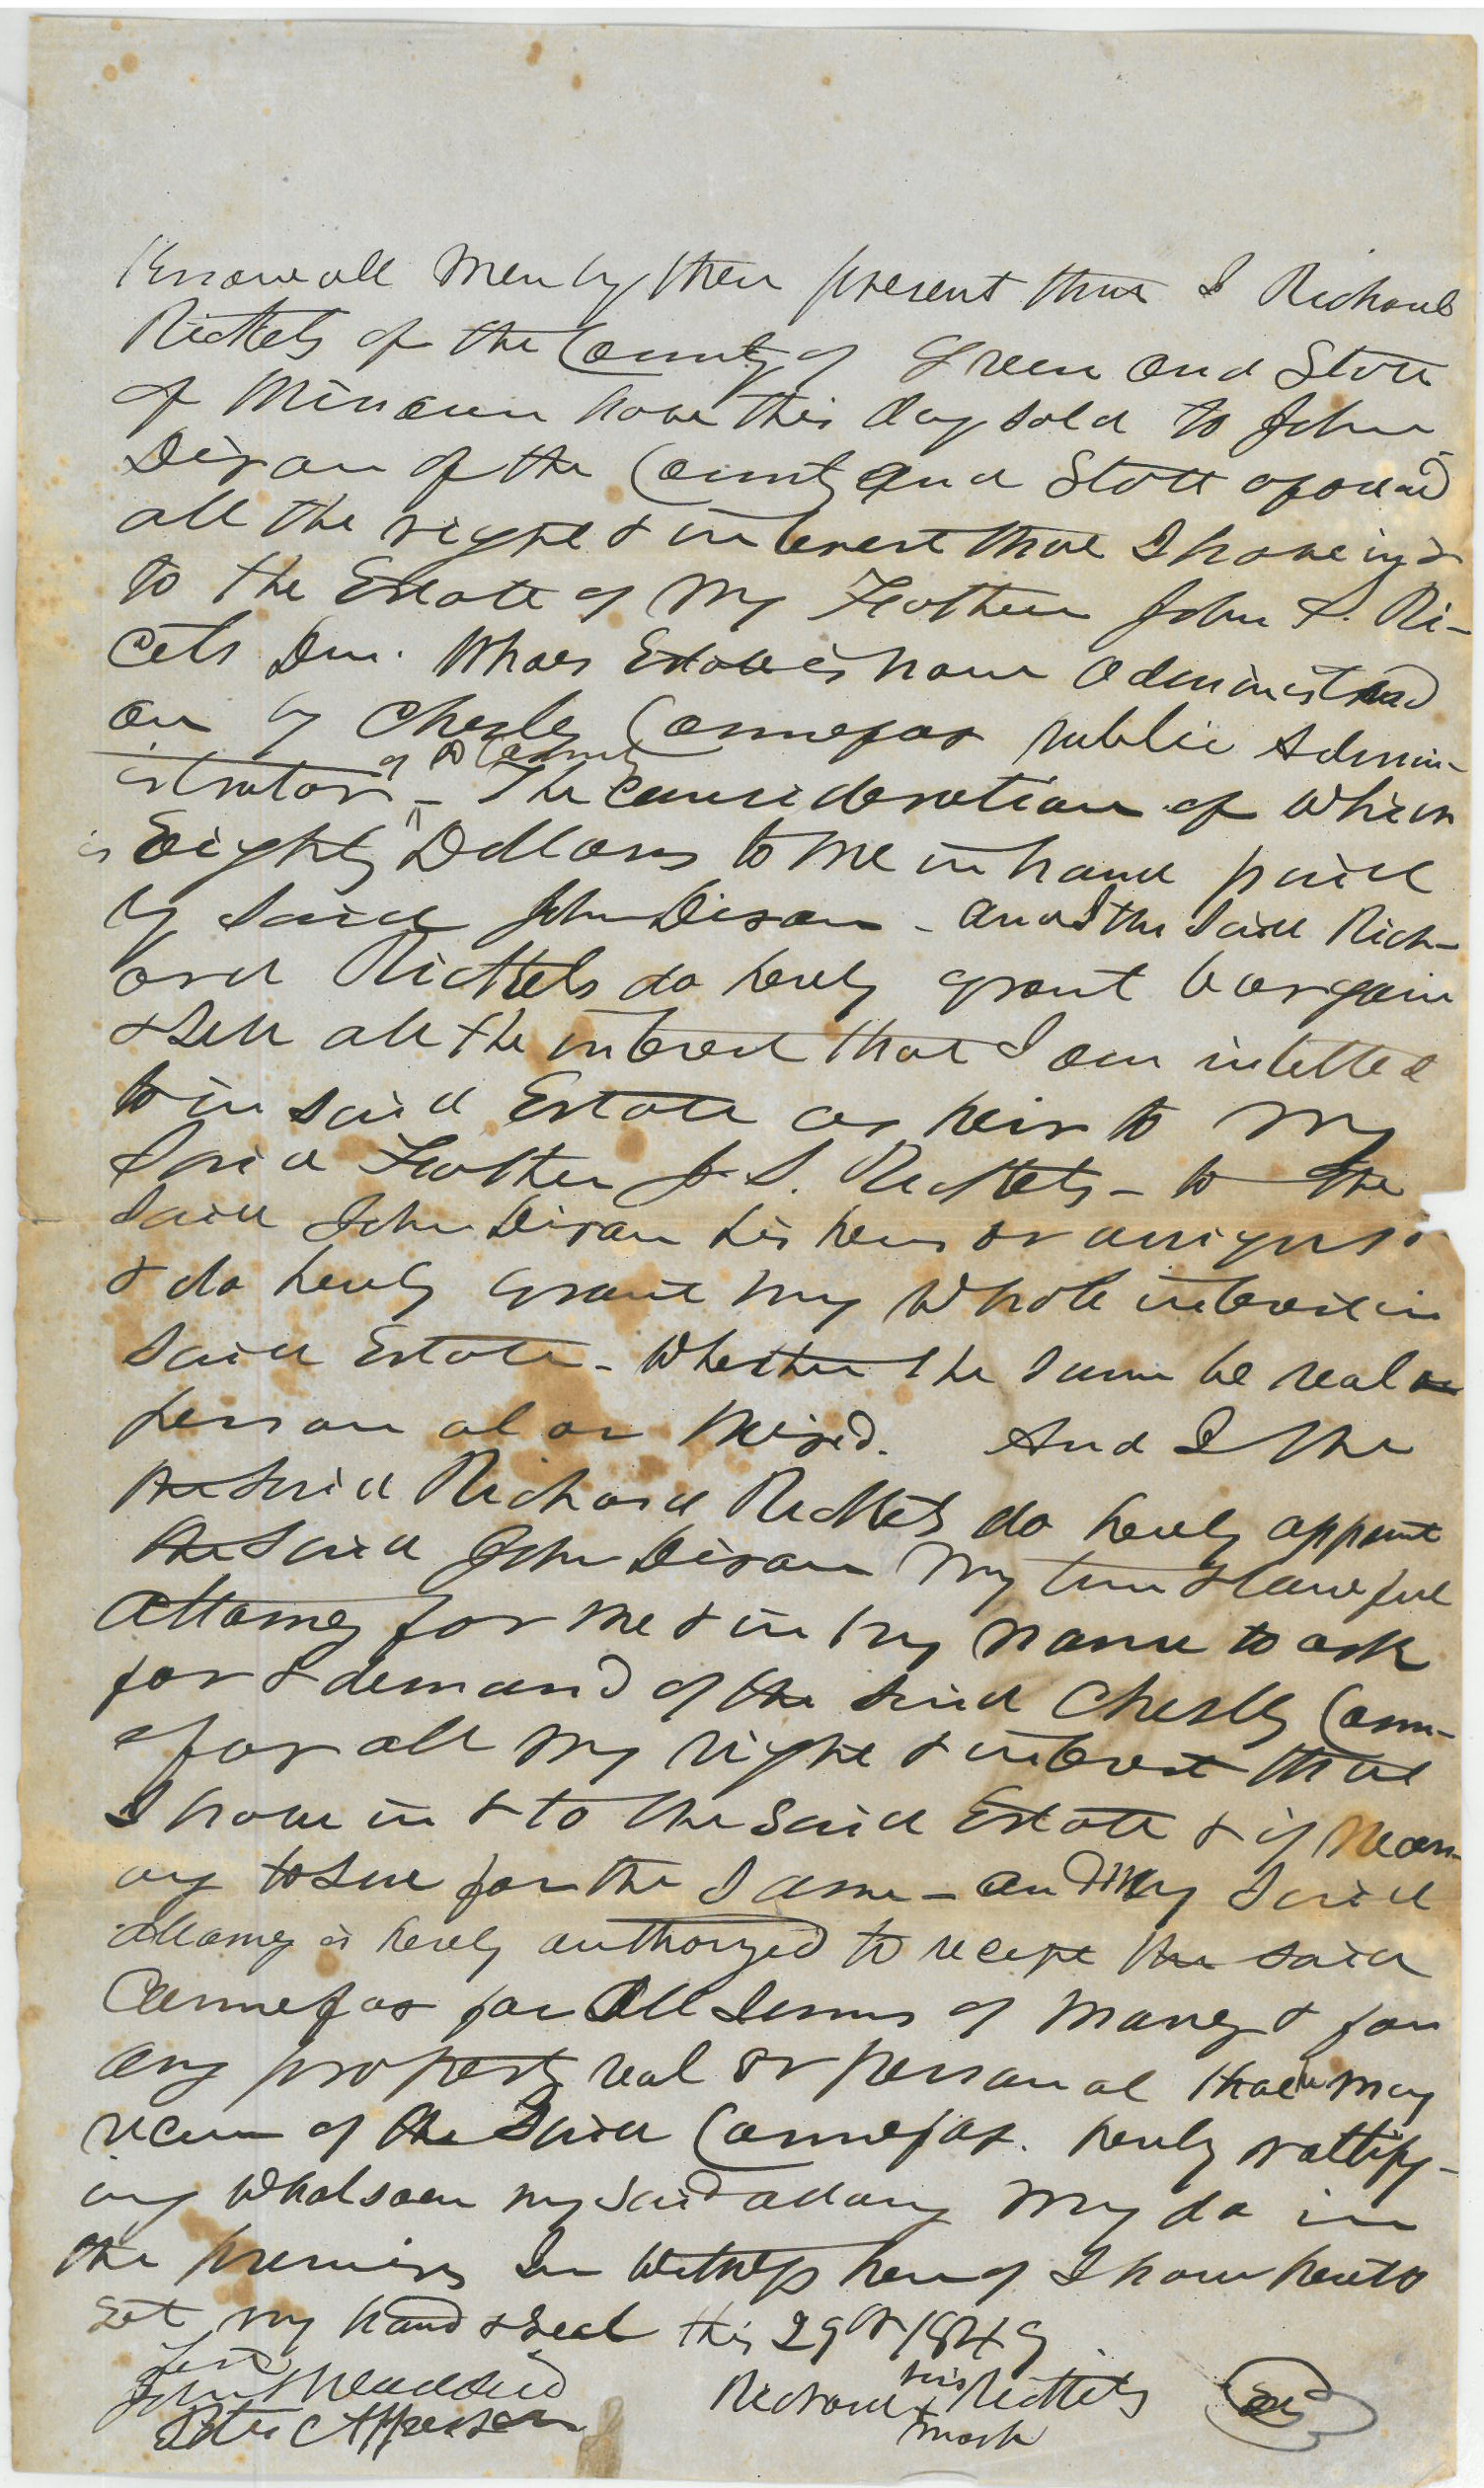 Know all Men by these present that I Richard
Rickets of the County of Green and State
of Missouri have this day sold to John
Dixon of the County and State aforesaid
all the right & interest that I have in &
to the Estate of My Father John S. Ri-
cets Den. Whoes Estate is now administered
on by Chesley Cannefax public Admin-
istrator of sd County - The consideration of which
is Eighty Dollars to me in hand paid
by said John Dixon - and I the said Rich-
ard Rickets do herby grant bargain
& sell all the interest that I am intitled
to in said Estate as heir to my
said Father J. S. Rickets - to the
said John Dixon his heirs or assigns &
& do herby grant my whole interest in
said Estate - Whether the same be real or
personal or Mixed. And I the
the said Richard Rickets do herby appoint
the said John Dixon my true & lawful
attorney for me & in my name to ask
for & demand of the said Chesley Cann-
efax all my right & interest that
I have in & to the said Estate & if necess-
ary to sue for the same - and my said
attorney is herby authorized to recept the said
Cannefax for all sums of money & for
any property real or personal that he may
receive of the said Cannefax. herby rattify-
ing whatsoever my said attorney my do in
the premises In witness hereof I have hereto
set my hand & seal this 29th 1849
Test
Peter C Apperson
Richard his x mark Rickets seal